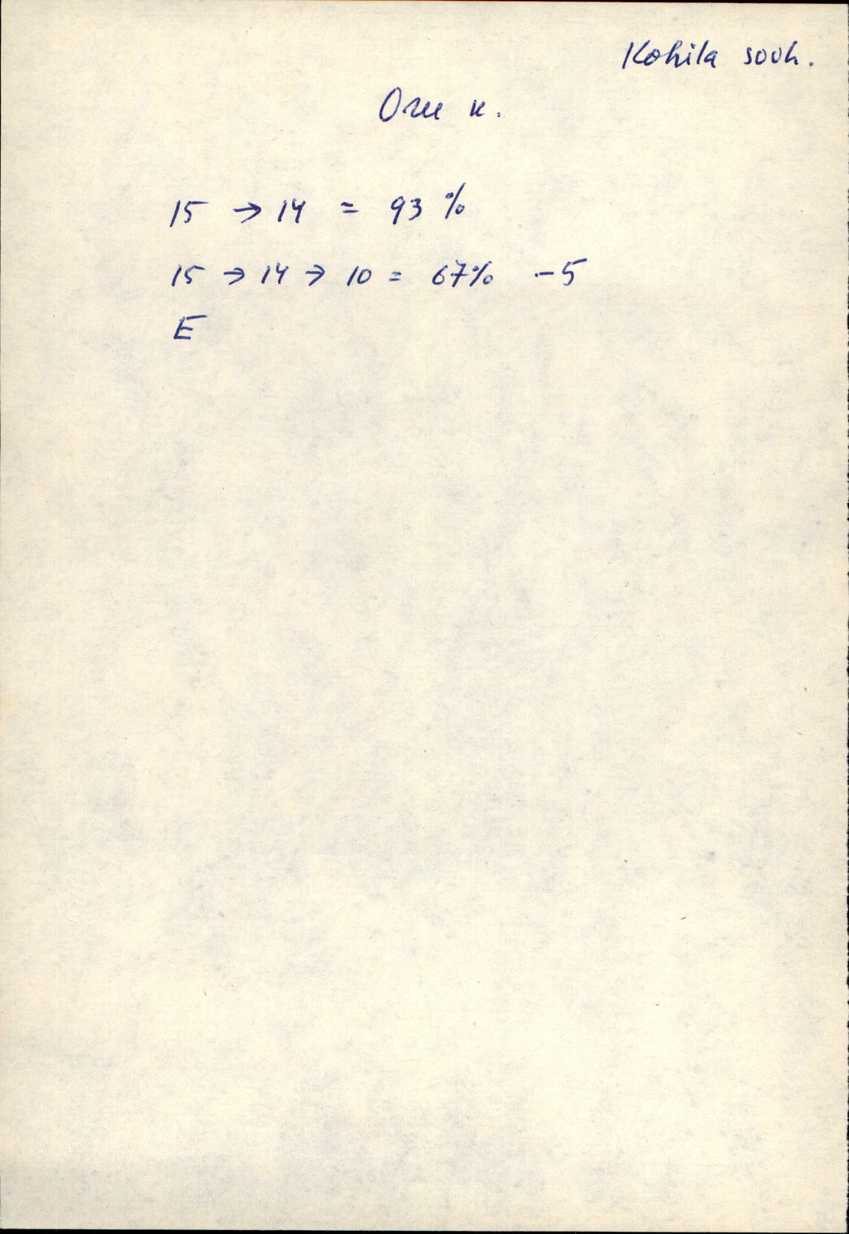 Kohila sovh.
Oru k.
15 → 14 = 93 %
15 → 14 → 10 = 67% -5
E